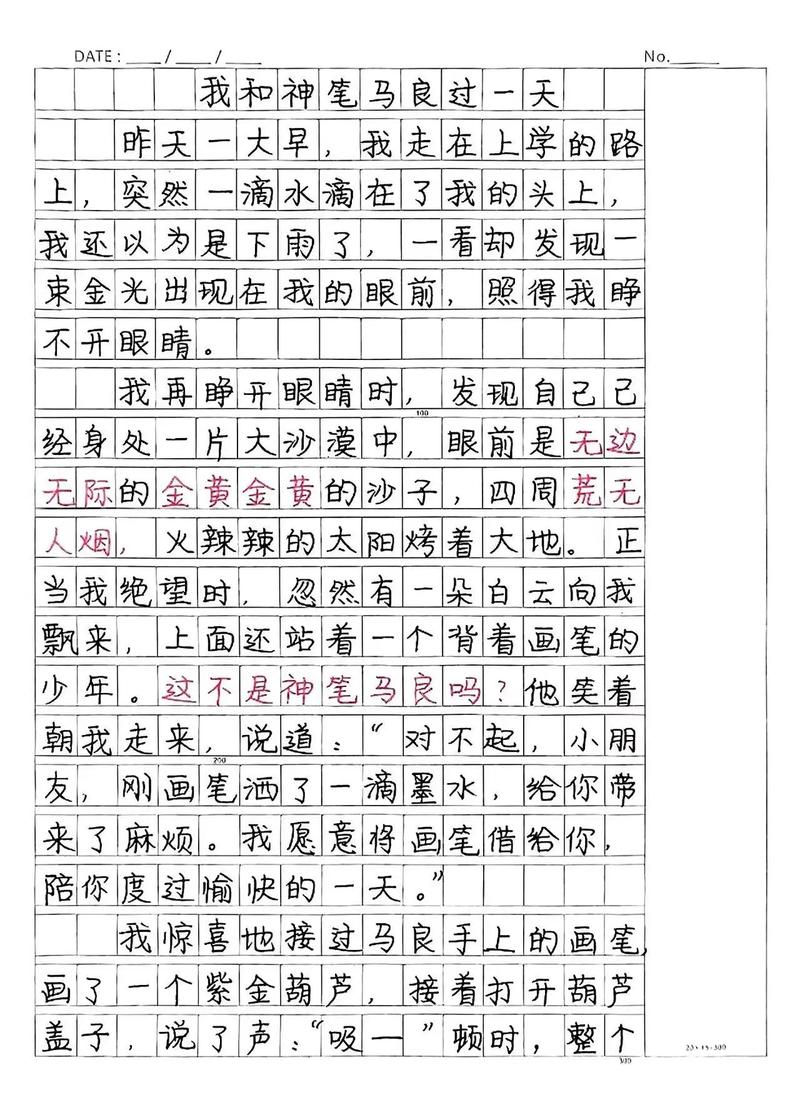 DATE: ___/___/___ No.____
我和神笔马良过一天
昨天一大早，我走在上学的路
上，突然一滴水滴在了我的头上，
我还以为是下雨了，一看却发现一
束金光出现在我的眼前，照得我睁
不开眼睛。
我再睁开眼睛时，发现自己已
100
经身处一片大沙漠中，眼前是无边
无际的金黄金黄的沙子，四周荒无
人烟，火辣辣的太阳烤着大地。正
当我绝望时，忽然有一朵白云向我
飘来，上面还站着一个背着画笔的
少年。这不是神笔马良吗？他笑着
朝我走来，说道：“对不起，小朋
200
友，刚画笔洒了一滴墨水，给你带
来了麻烦。我愿意将画笔借给你，
陪你度过愉快的一天。”
我惊喜地接过马良手上的画笔，
画了一个紫金葫芦，接着打开葫芦
盖子，说了声：“吸一”顿时，整个
20×15=300
300